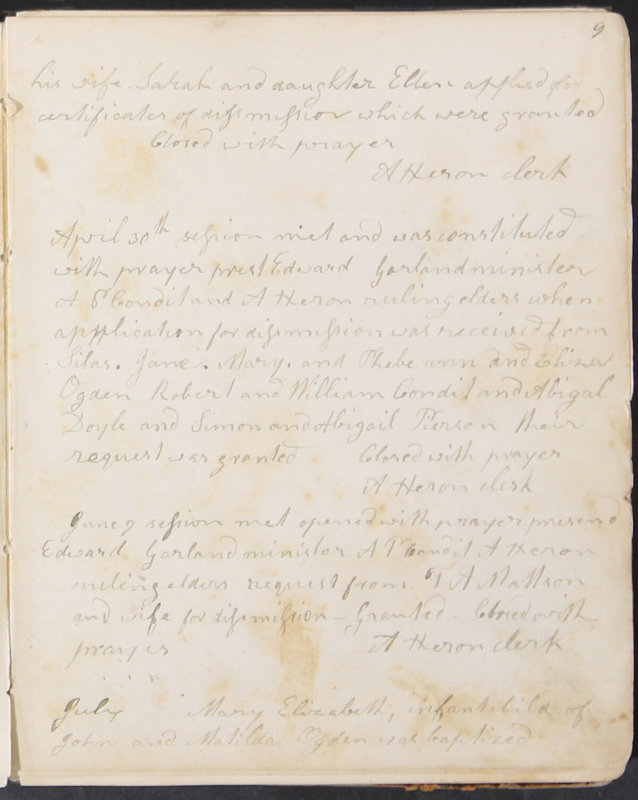 9
his wife Sarah and daughter Ellen applied for
certificates of dissmission which were granted
Closed with prayer
A Heron clerk
April 30th session met and was constituted
with prayer prest Edward Garland minister
A P Condit and A Heron ruling elders when
application for dissmission was received from
Silas. Jane. Mary. and Phebe ann and Eliza
Ogden Robert and William Condit and Abigal
Doyle and Simon and Abigail Pierson their
request was granted Closed with prayer
A Heron clerk
June 7 session met opened with prayer presend
Edward Garland minister A P Condit A Heron
ruling elders request from T A Mattson
and wife for dissmission – Granted. Closed with
prayer A Heron clerk
July Mary Elizabeth, infant child of
John and Matilda Ogden was baptized